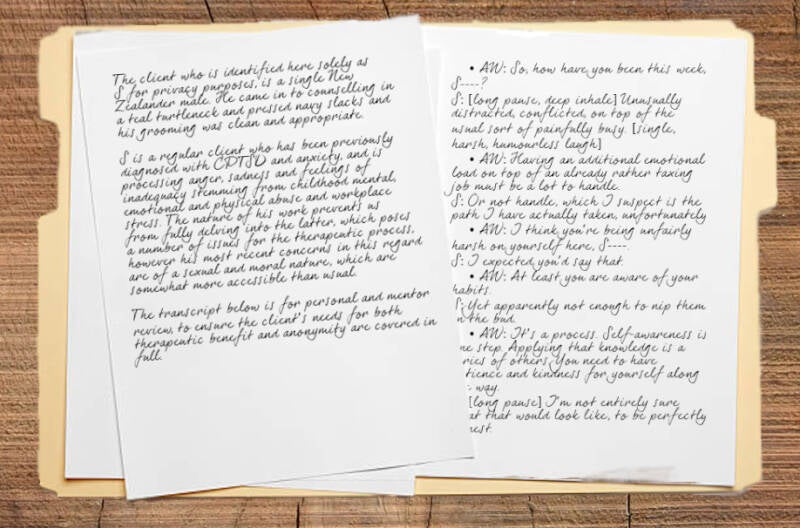 The client who is identified here solely as
S for privacy purposes, is a single New
Zealander male. He came in to counselling in
a teal turtleneck and pressed navy slacks and
his grooming was clean and appropriate.
S is a regular client who has been previously
diagnosed with CPTSD and anxiety, and is
processing anger, sadness and feelings of
inadequacy stemming from childhood mental,
emotional and physical abuse and workplace
stress. The nature of his work prevents us
from fully delving into the latter, which poses
a number of issues for the therapeutic process,
however his most recent concerns in this regard
are of a sexual and moral nature, which are
somewhat more accessible than usual.
The transcript below is for personal and mentor
review, to ensure the client's needs for both
therapeutic benefit and anonymity are covered in
full.
• AW: So, how have you been this week,
S----?
S: [long pause, deep inhale] Unusually
distracted, conflicted, on top of the
usual sort of painfully busy. [single,
harsh, humourless laugh]
• AW: Having an additional emotional
load on top of an already rather taxing
job must be a lot to handle.
S: Or not handle, which I suspect is the
path I have actually taken, unfortunately
• AW: I think you're being unfairly
harsh on yourself here, S----.
S: I expected you'd say that.
• AW: At least you are aware of your
habits.
S: Yet apparently not enough to nip them
n the bud.
• AW: It's a process. Self-awareness is
ne step. Applying that knowledge is a
ries of others. You need to have
tience and kindness for yourself along
way.
[long pause] I'm not entirely sure
at that would look like, to be perfectly
nest.